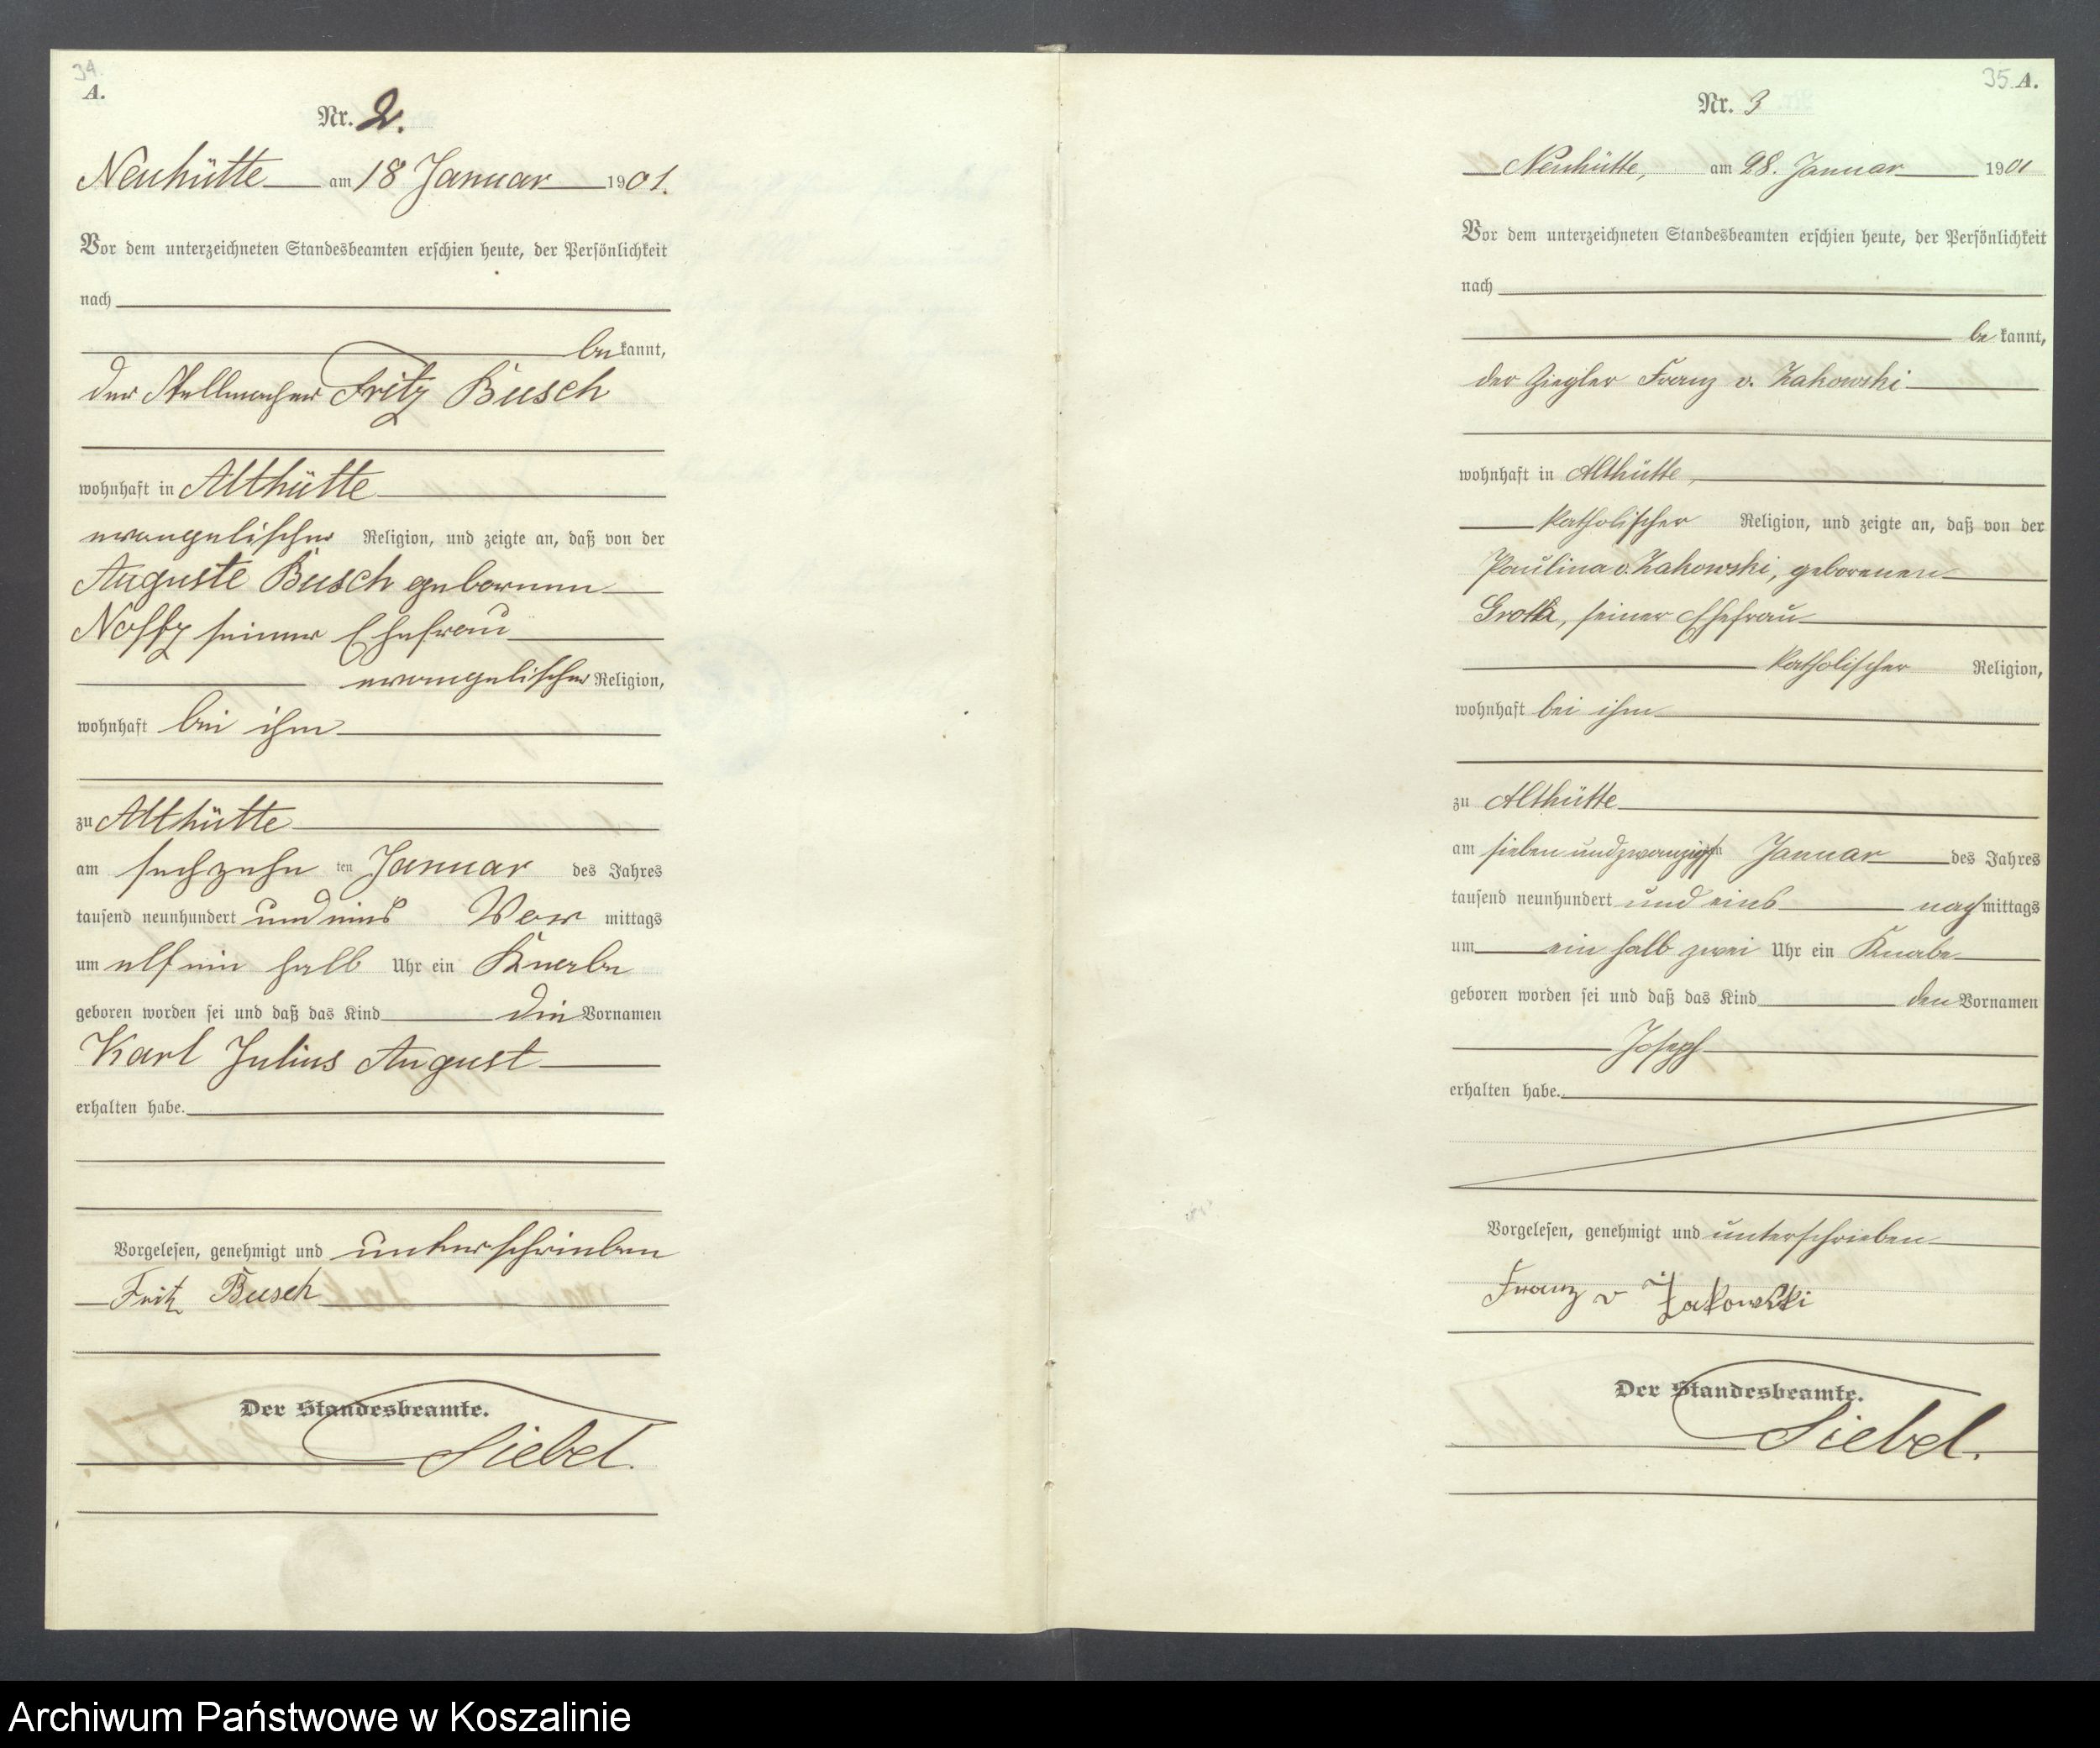 34.
A.
Nr. 2.
Neuhütte am 18 Januar 1901.
Vor dem unterzeichneten Standesbeamten erschien heute, der Persönlichkeit
nach
be kannt,
der Stellmacher Fritz Busch
wohnhaft in Althütte
evangelischer Religion, und zeigte an, daß von der
Auguste Busch geborenen
Noffz seiner Ehefrau
evangelischer Religion,
wohnhaft bei ihm
zu Althütte
am sechzehn ten Januar des Jahres
tausend neunhundert und eins Vor mittags
um elf ein halb Uhr ein Knabe
geboren worden sei und daß das Kind die Vornamen
Karl Julius August
erhalten habe.
Vorgelesen, genehmigt und unterschrieben
Fritz Busch
Der Standesbeamte.
Siebel.
35 A.
Nr. 3
Neuhütte, am 28. Januar 1901
Vor dem unterzeichneten Standesbeamten erschien heute, der Persönlichkeit
nach
be kannt,
der Ziegler Franz v. Zakowski
wohnhaft in Althütte,
katholischer Religion, und zeigte an, daß von der
Paulina v. Zakowski, geborenen
seiner Ehefrau
katholischer Religion,
wohnhaft bei ihm
zu Althütte
am sieben und zwanzigsten Januar des Jahres
tausend neunhundert und eins nach mittags
um ein halb zwei Uhr ein Knabe
geboren worden sei und daß das Kind den Vornamen
Joseph
erhalten habe.
Vorgelesen, genehmigt und unterschrieben
Franz v Żakowski
Der Standesbeamte.
Siebel.
Archiwum Państwowe w Koszalinie